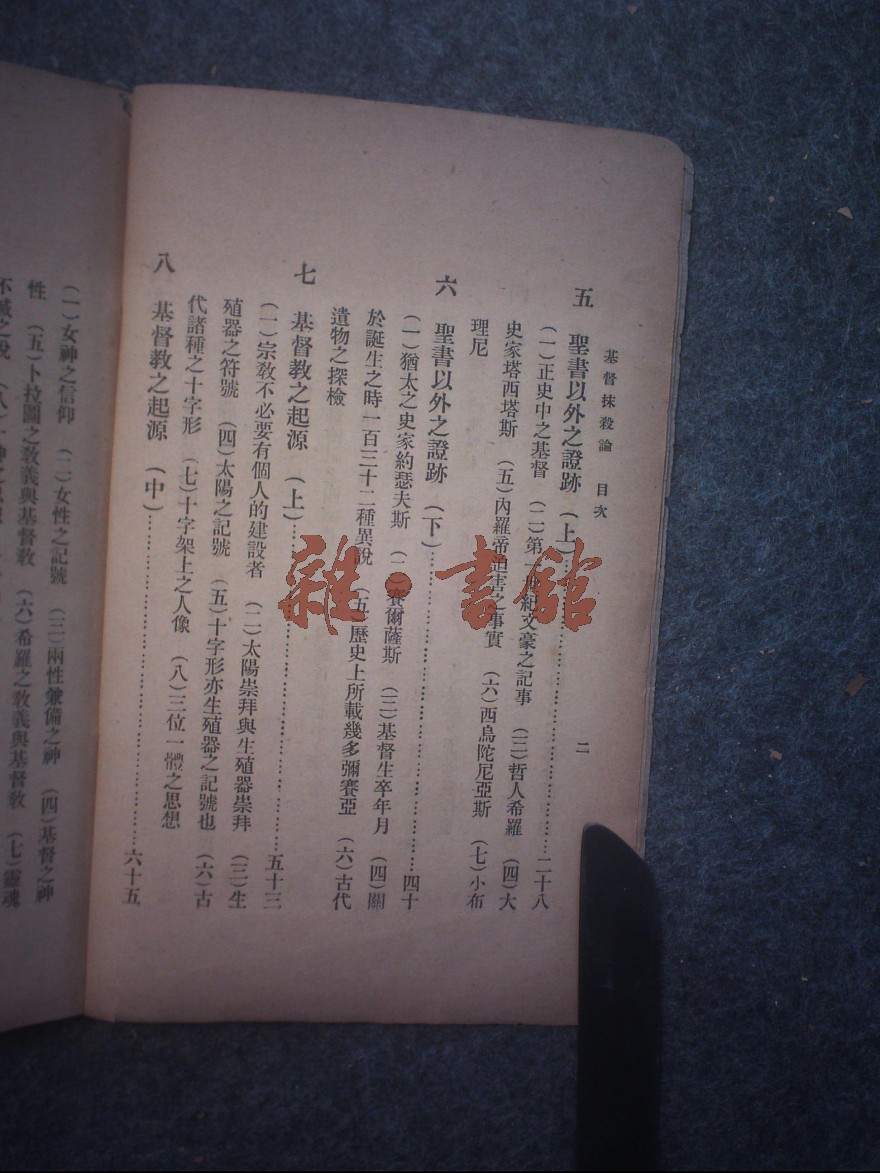 基督抹殺論　目次
二
五　聖書以外之證跡　(上)……二十八
(一)正史中之基督　(二)第一世紀文豪之記事　(三)哲人希羅　(四)大
史家塔西塔斯　(五)內羅帝迫害之事實　(六)西烏陀尼亞斯　(七)小布
理尼
六　聖書以外之證跡　(下)……四十
(一)猶太之史家約瑟夫斯　(二)賽爾薩斯　(三)基督生卒年月　(四)關
於誕生之時一百三十二種異說　(五)歷史上所載幾多彌賽亞　(六)古代
遺物之探檢
七　基督教之起源　(上)……五十三
(一)宗教不必要有個人的建設者　(二)太陽崇拜與生殖器崇拜　(三)生
殖器之符號　(四)太陽之記號　(五)十字形亦生殖器之記號也　(六)古
代諸種之十字形　(七)十字架上之人像　(八)三位一體之思想
八　基督教之起源　(中)……六十五
(一)女神之信仰　(二)女性之記號　(三)兩性兼備之神　(四)基督之神
性　(五)卜拉圖之教義與基督教　(六)希羅之教義與基督教　(七)靈魂
不滅之說　(八)
雜·書館